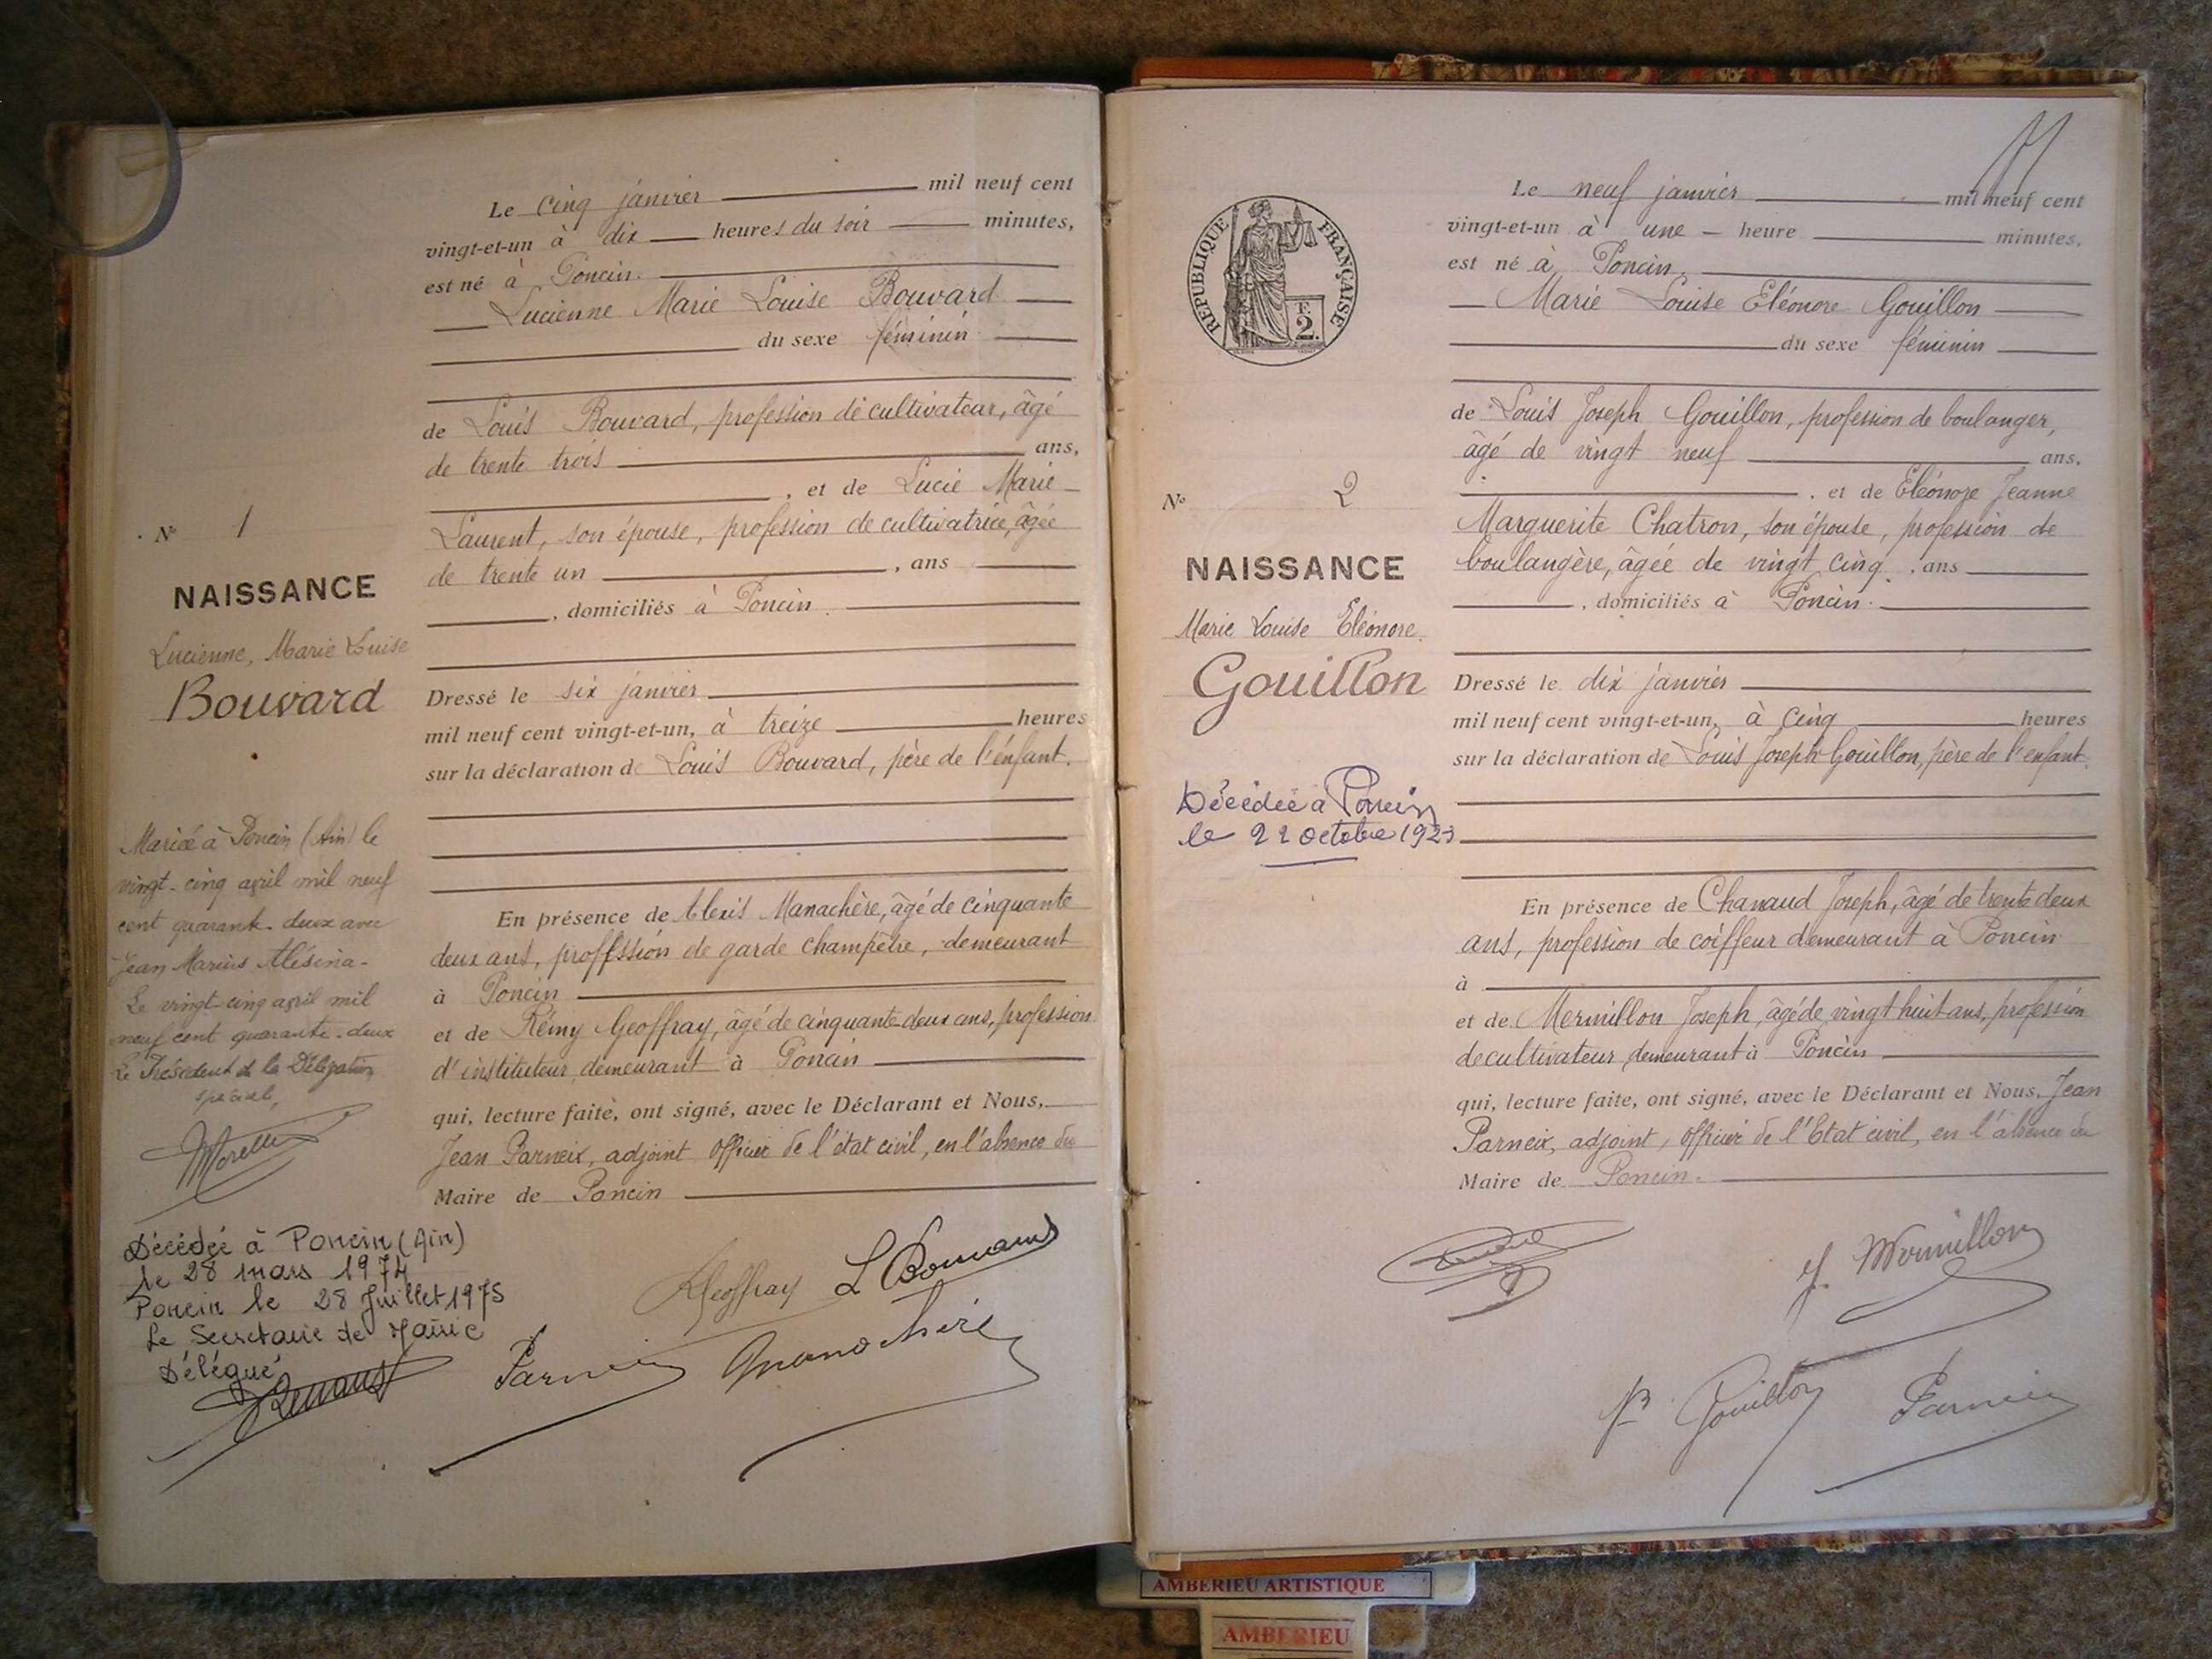 Le cinq janvier mil neuf cent
vingt-et-un à dix heures du soir minutes,
est né à Poncin.
Lucienne Marie Louise Bouvard
du sexe féminin
de Louis Bouvard, profession de cultivateur, âgé
de trente trois ans,
, et de Lucie Marie
Laurent, son épouse, profession de cultivatrice, âgée
de trente un , ans
, domiciliés à Poncin.
Dressé le six janvier
mil neuf cent vingt-et-un, à treize heures
sur la déclaration de Louis Bouvard, père de l'enfant.
En présence de Alexis Manachère, âgé de cinquante
deux ans, proffession de garde champêtre, demeurant
à Poncin
et de Rémy Geoffray, âgé de cinquante deux ans, profession
d'instituteur demeurant à Poncin
qui, lecture faite, ont signé, avec le Déclarant et Nous,
Jean Parneix, adjoint officier de l'état civil, en l'absence du
Maire de Poncin
RGeoffray L Bouvard
Parneix Manachère
N° 1
NAISSANCE
Lucienne, Marie Louise
Bouvard
Mariée à Poncin (Ain) le
vingt-cinq avril mil neuf
cent quarante-deux avec
Jean Marius Alésina-
Le vingt-cinq avril mil
neuf cent quarante-deux
Le Président de la Délégation
spéciale,
Décédée à Poncin (Ain)
le 28 mars 1974
Poncin le 28 Juillet 1975
Le Secretaire de Mairie
Délégué
RÉPUBLIQUE FRANÇAISE
F.
2.
N° 2
NAISSANCE
Marie Louise Eléonore.
Gouillon
Décédée à Poncin
le 22 octobre 1923
Le neuf janvier mil neuf cent
vingt-et-un à une heure minutes,
est né à Poncin.
Marie Louise Eléonore Gouillon
du sexe féminin
de Louis Joseph Gouillon, profession de boulanger,
âgé de vingt neuf ans,
, et de Eléonore Jeanne
Marguerite Chatron, son épouse, profession de
boulangère, âgée de vingt cinq , ans
, domiciliés à Poncin.
Dressé le dix janvier
mil neuf cent vingt-et-un, à cinq heures
sur la déclaration de Louis Joseph Gouillon, père de l'enfant.
En présence de Chanaud Joseph, âgé de trente deux
ans, profession de coiffeur demeurant à Poncin
à
et de Mermillon Joseph, âgé de vingt huit ans, profession
de cultivateur, demeurant à Poncin
qui, lecture faite, ont signé, avec le Déclarant et Nous, Jean
Parneix, adjoint, officier de l'Etat civil, en l'absence du
Maire de Poncin.
J Mermillon
Gouillon Parneix
AMBERIEU ARTISTIQUE
AMBERIEU